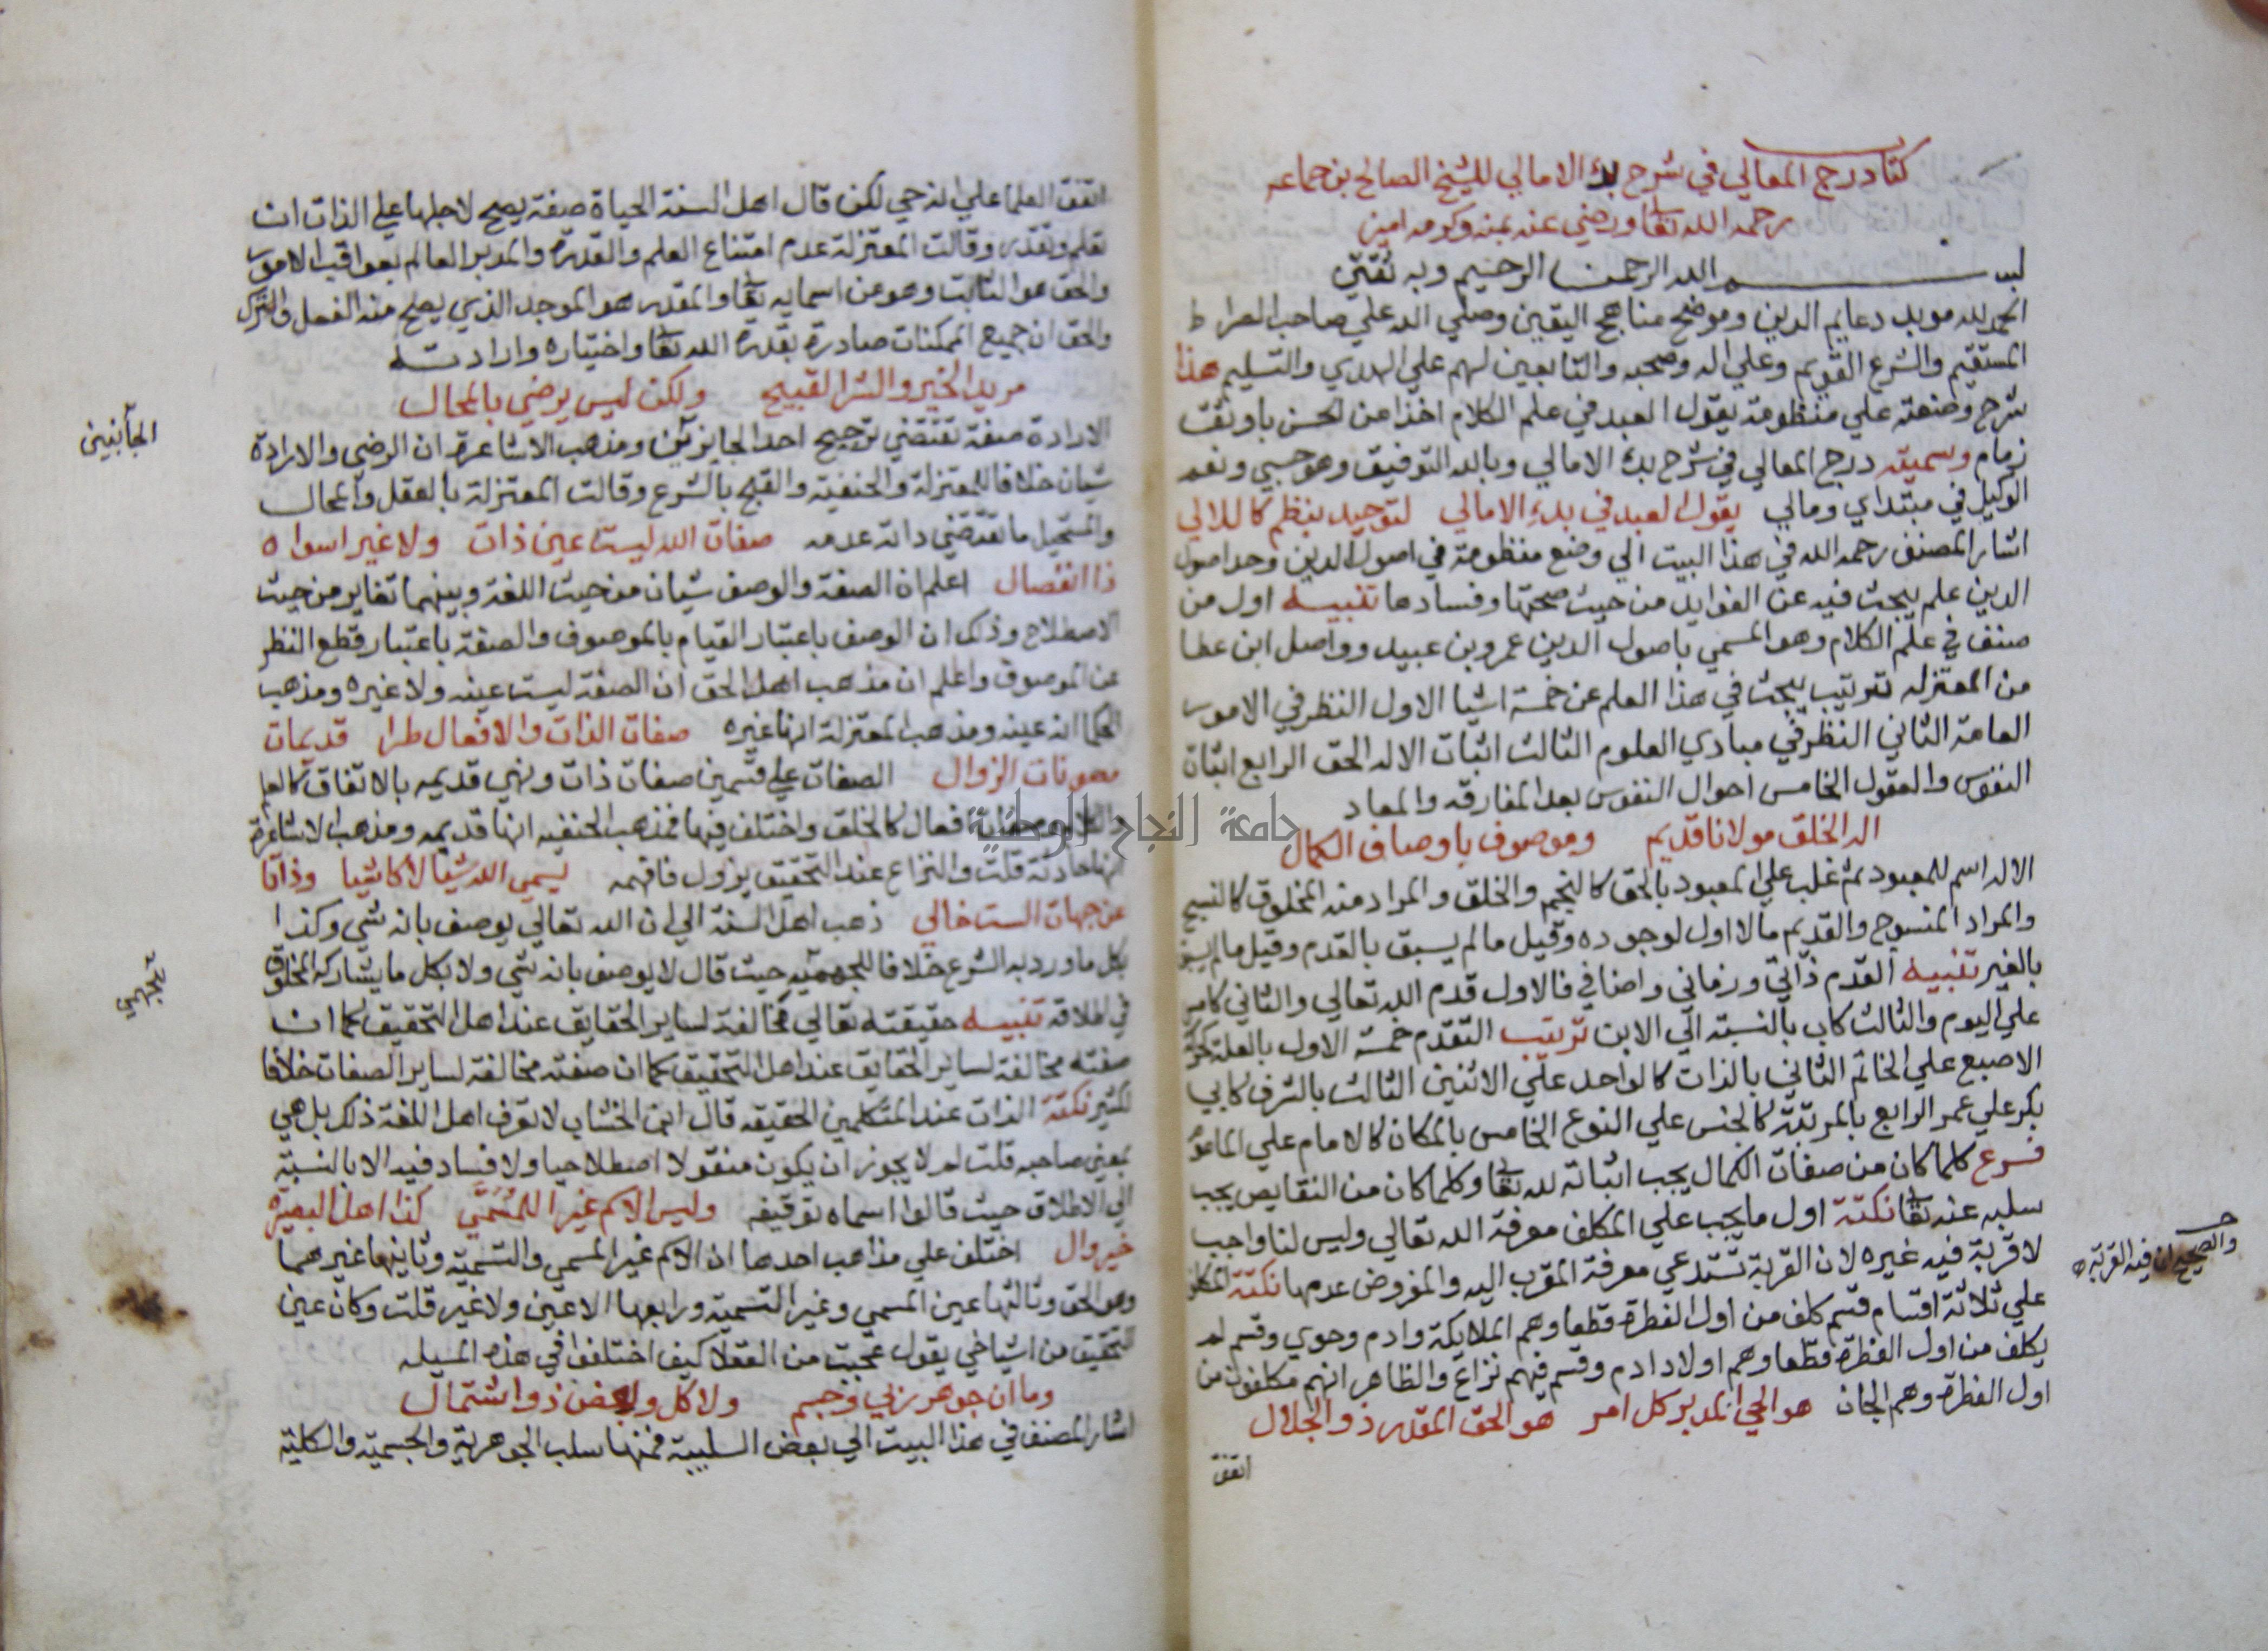 كتاب درج المعالي في شرح بدء الامالي للشيخ الصالح بن جماعه
رحمه الله تعا ورضي عنه بمنه وكرمه امين
بسم الله الرحمن الرحيم وبه ثقتي
الحمد لله مويد دعايم الدين وموضح مناهج اليقين وصلي الله علي صاحب الصراط
المستقيم والشرع القويم وعلي اله وصحبه والتابعين لهم علي الهدي والتسليم هذا
شرح وضعته علي منظومة يقول العبد في علم الكلام اخذا عن لحسن باوثقت
زمام وسميته درج المعالي في شرح بدء الامالي وبالله التوفيق وهو حسبي ونعم
الوكيل في مبتداي ومالي يقول العبد في بدء الامالي لتوحيد بنظم كاللالي
اشار المصنف رحمه الله في هذا البيت الي وضع منظومة في اصول الدين وحد اصول
الدين علم يبحث فيه عن الفوايد من حيث صحتها وفسادها تنبيه اول من
صنف في علم الكلام وهو المسمي باصول الدين عمرو بن عبيد وواصل ابن عطا
من المعتزله ترتيب يبحث في هذا العلم عن خمسة اشيا الاول النظر في الامور
العامة الثاني النظر في مبادي العلوم الثالث اثبات الاله الحق الرابع اثبات
النفوس والعقول الخامس احوال النفوس بعد المفارقه والمعاد
اله الخلق مولانا قديم وموصوف باوصاف الكمال
الاله اسم للمعبود ثم غلب علي المعبود بالحق كالنجم والخلق والمراد منه المخلوق كالنسيج
والمراد المنسوج والقديم مالا اول لوجوده وقيل مالم يسبق بالقدم وقيل مالم يسبق
بالغير تنبيه القدم ذاتي وزماني واضافي فالاول قدم الله تعالي والثاني كامس
علي اليوم والثالث كاب بالنسبة الي الابن ترتيب التقدم خمسة الاول بالعلة كحركة
الاصبع علي الخاتم الثاني بالذات كالواحد علي الاثنين الثالث بالشرف كابي
بكر علي عمر الرابع بالمرتبة كالجنس علي النوع الخامس بالمكان كالامام علي الماموم
فرع كلما كان من صفات الكمال يجب اثباته لله تعا وكلما كان من النقايص يجب
سلبه عنه تعا نكتة اول ما يجب علي المكلف معرفة الله تعالي وليس لنا واجب
لا قربة فيه غيره لان القربة تستدعي معرفة المقرب اليه والمفروض عدمها نكتة المكلف
والصحيح ان فيه القربة
علي ثلاثة اقسام قسم كلف من اول الفطرة قطعا وهم الملايكة وادم وحوي وقسم لم
يكلف من اول الفطرة قطعا وهم اولاد ادم وقسم فيهم نزاع والظاهر انهم مكلفون من
اول الفطرة وهم الجان هو الحي المدبر كل امر هو الحق المقدر ذو الجلال
اتفق
اتفق العلما علي انه حي لكن قال اهل السنة الحياة صفة يصح لاجلها علي الذات ان
تعلم وتقدر وقالت المعتزلة عدم امتناع العلم والقدرة والمدبر العالم بعواقب الامور
والحق هو الثابت وهو من اسمايه تعا والمقدر هو الموجد الذي يصح منه الفعل والترك
والحق ان جميع الممكنات صادرة بقدرة الله تعا واختياره وارادته
مريد الخير والشر القبيح ولكن ليس يرضي بالمحال
الارادة صفة تقتضي ترجيح احد الجايزين ومذهب الاشاعرة ان الرضي والارادة
الجانبين
شيان خلافا للمعتزلة والحنفية والقبح بالشرع وقالت المعتزلة بالعقل والمحال
والمستحيل ما تقتضي ذاته عدمه صفات الله ليست عين ذات ولا غير اسواه
ذا انفصال اعلم ان الصفة والوصف شيان من حيث اللغة وبينهما تغاير من حيث
الاصطلاح وذلك ان الوصف باعتبار القيام بالموصوف والصفة باعتبار قطع النظر
عن الموصوف واعلم ان مذهب اهل الحق ان الصفة ليست عينه ولا غيره ومذهب
الحكما انه عينه ومذهب المعتزلة انها غيره صفات الذات والافعال طرا قديمات
مصونات الزوال الصفات علي قسمين صفات ذات وهي قديمه بالاتفاق كالعلم
وصفات افعال كالخلق واختلف فيها فمذهب الحنفيه انها قديمه ومذهب الاشاعرة
جامعة النجاح الوطنية
انها حادثة قلت والنزاع عند التحقيق يزول فافهمه يسمي الله شيا لا كاشيا وذاتا
عن جهات الست خالي ذهب اهل السنة الي ان الله تعالي يوصف بانه شي وكذا
بكل ما ورد به الشرع خلافا للجهمية حيث قال لا يوصف بانه شي ولا بكل ما يشاركه المخلوق
في اطلاقه تنبيه حقيقته تعالي مخالفة لساير الحقايق عند اهل التحقيق كما ان
صفته مخالفة لساير الحقايق عند اهل التحقيق كما ان صفته مخالفة لساير الصفات خلافا
لكثير نكتة الذات عند المتكلمين الحقيقه قال ابن الخشاب لا تعرف اهل اللغة ذلك بل هي
بمعني صاحبه قلت لم لا يجوز ان يكون منقولا اصطلاحيا ولا فساد فيه الا بالنسبة
الي الاطلاق حيث قالوا اسماه توقيفه وليس الاسم غير اللمسمي كذا اهل البصيرة
خير وال اختلف علي مذاهب احدها ان الاسم غير المسمي والتسمية وثانيها غيرهما
وهو الحق وثالثها عين المسمي وغير التسمية ورابعها لا عين ولا غير قلت وكان عين
التحقيق من اشياخي يقول عجبت من العقلا كيف اختلفوا في هذه المسيله
وما ان جوهر ربي وجسم ولا كل وبعض ذو اشتمال
اشار المصنف في هذا البيت الي بعض السلبية فمنها سلب الجوهرية والجسمية والكلية